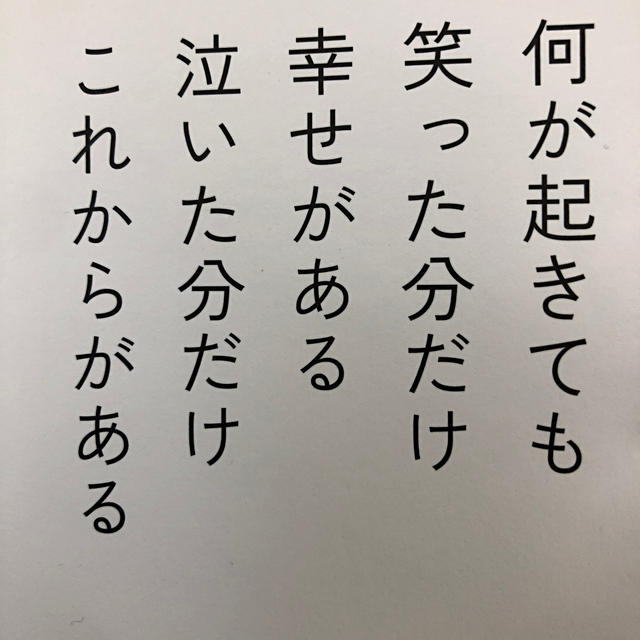 何が起きても
笑った分だけ
幸せがある
泣いた分だけ
これからがある